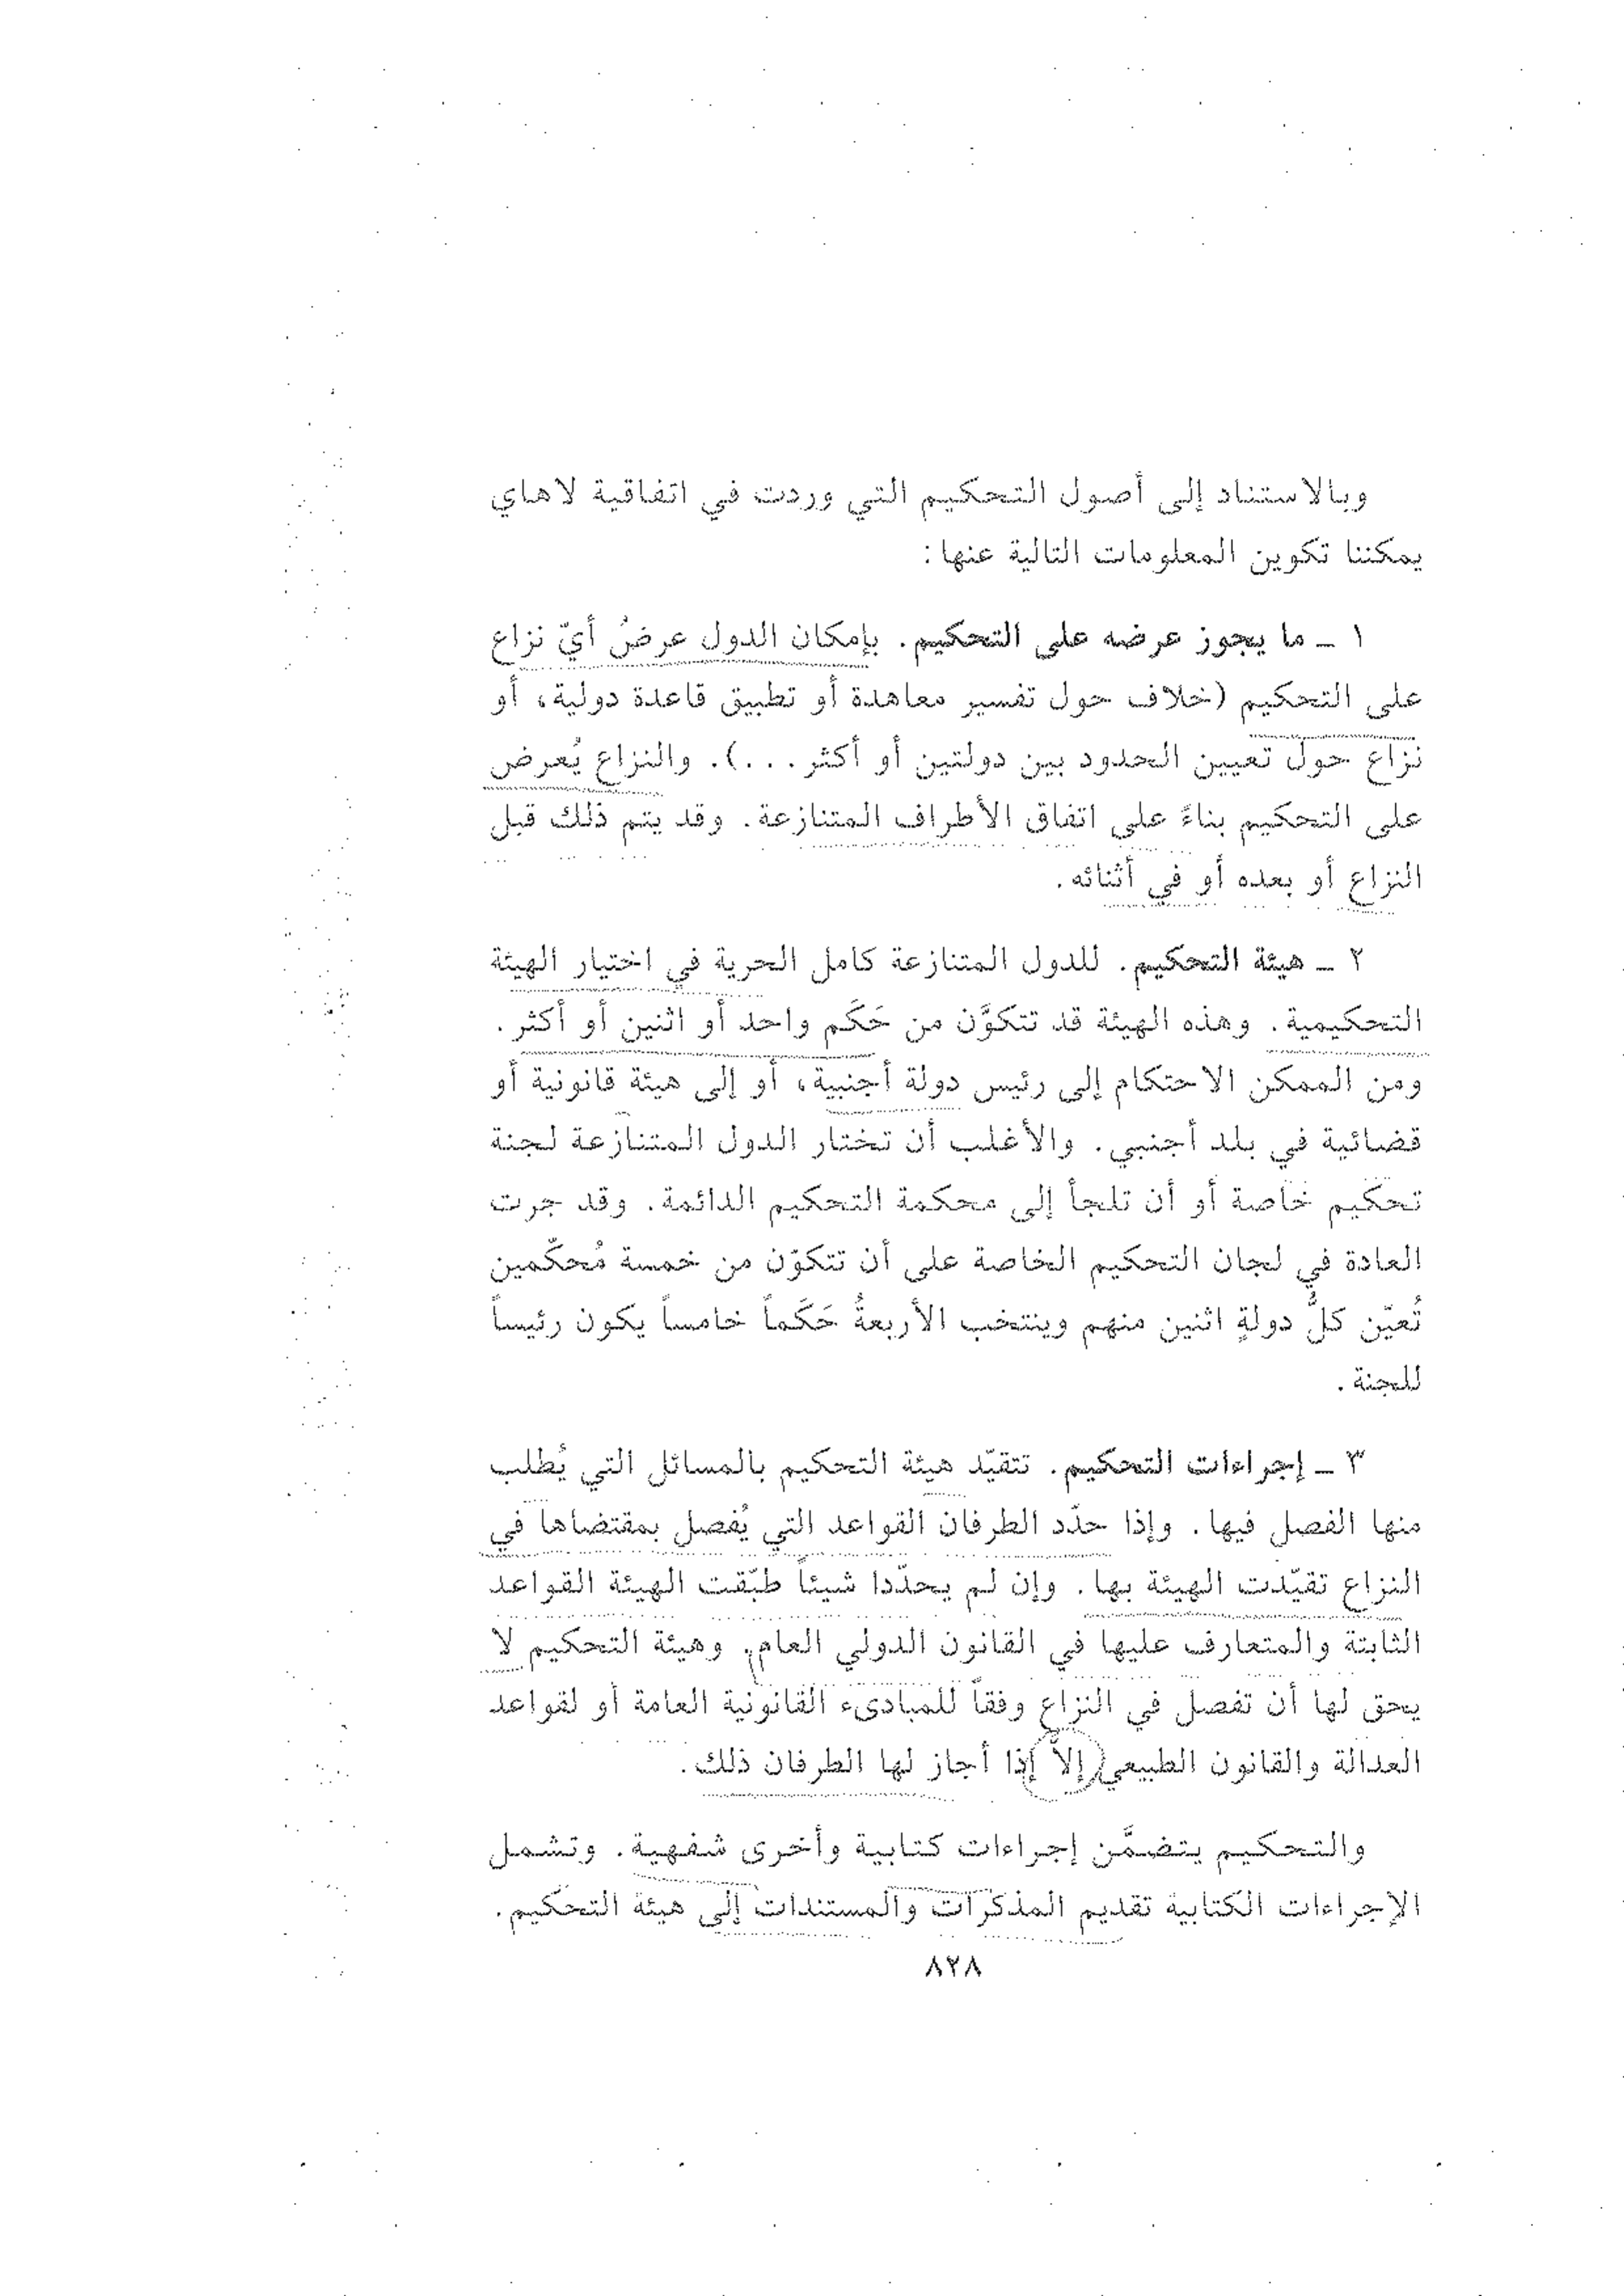 وبالاستناد إلى أصول التحكيم التي وردت في اتفاقية لاهاي
يمكننا تكوين المعلومات التالية عنها:
١ ـ ما يجوز عرضه على التحكيم. بإمكان الدول عرضُ أيّ نزاع
على التحكيم (خلاف حول تفسير معاهدة أو تطبيق قاعدة دولية، أو
نزاع حول تعيين الحدود بين دولتين أو أكثر...). والنزاع يُعرض
على التحكيم بناءً على اتفاق الأطراف المتنازعة. وقد يتم ذلك قبل
النزاع أو بعده أو في أثنائه.
٢ ـ هيئة التحكيم. للدول المتنازعة كامل الحرية في اختيار الهيئة
التحكيمية. وهذه الهيئة قد تتكوَّن من حَكَم واحد أو اثنين أو أكثر.
ومن الممكن الاحتكام إلى رئيس دولة أجنبية، أو إلى هيئة قانونية أو
قضائية في بلد أجنبي. والأغلب أن تختار الدول المتنازعة لجنة
تحكيم خاصة أو أن تلجأ إلى محكمة التحكيم الدائمة. وقد جرت
العادة في لجان التحكيم الخاصة على أن تتكوّن من خمسة مُحكّمين
تُعيّن كلُّ دولةٍ اثنين منهم وينتخب الأربعةُ حَكَماً خامساً يكون رئيساً
للجنة.
٣ ـ إجراءات التحكيم. تتقيّد هيئة التحكيم بالمسائل التي يُطلب
منها الفصل فيها. وإذا حدّد الطرفان القواعد التي يُفصل بمقتضاها في
النزاع تقيّدت الهيئة بها. وإن لم يحدّدا شيئاً طبّقت الهيئة القواعد
الثابتة والمتعارف عليها في القانون الدولي العام. وهيئة التحكيم لا
يحق لها أن تفصل في النزاع وفقاً للمبادىء القانونية العامة أو لقواعد
العدالة والقانون الطبيعي إلاَّ إذا أجاز لها الطرفان ذلك.
والتحكيم يتضمَّن إجراءات كتابية وأخرى شفهية. وتشمل
الإجراءات الكتابية تقديم المذكرات والمستندات إلى هيئة التحكيم.
٨٢٨